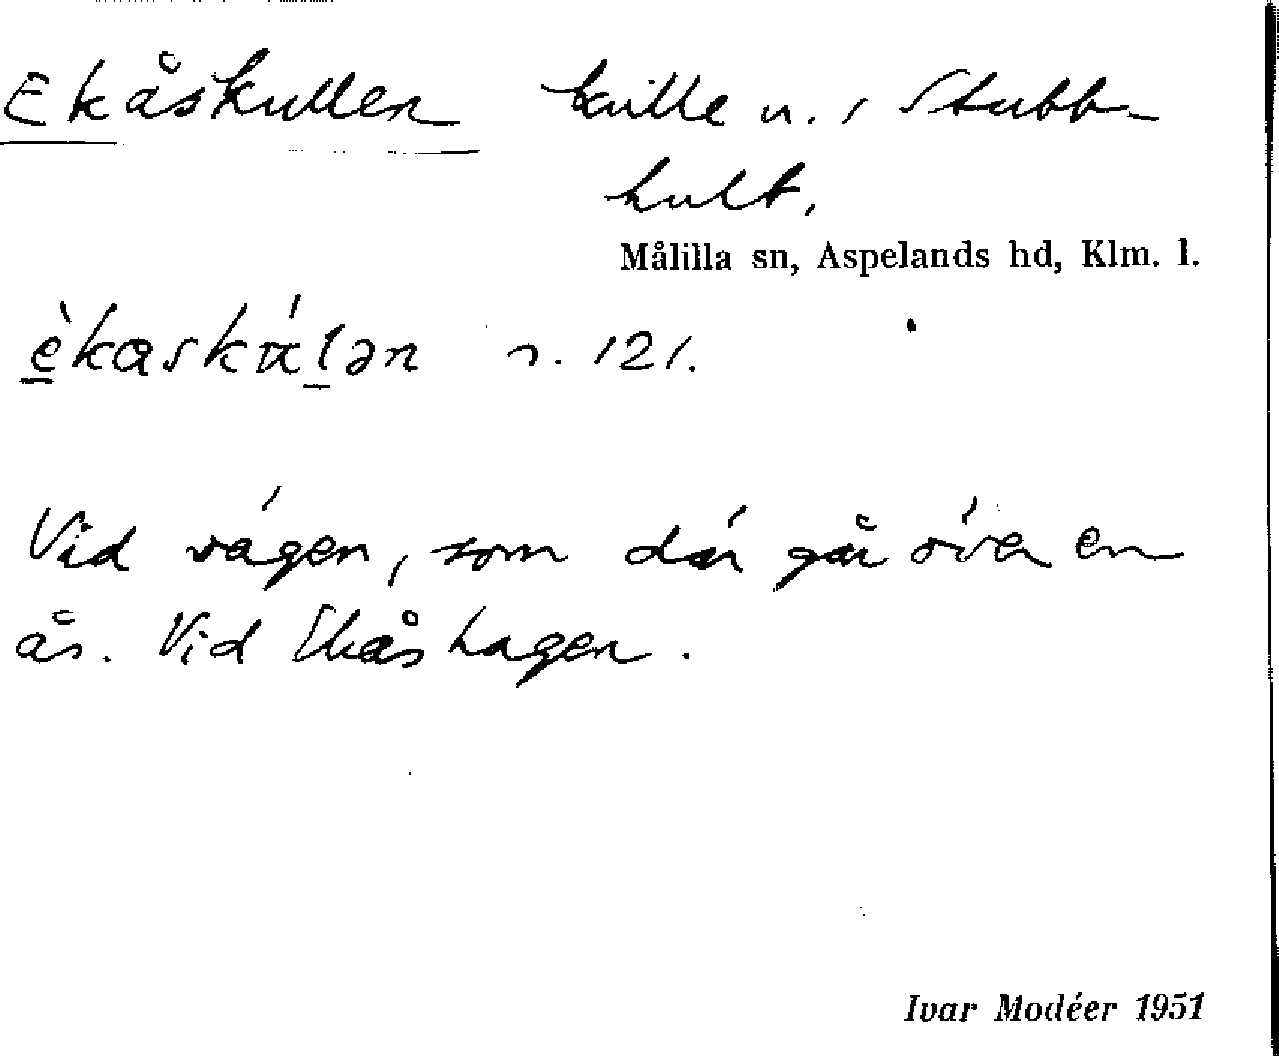 Ekåskullen kulle n. i Stubb-
hult.
Målilla sn, Aspelands hd, Klm. l.
s. 121.
Vid vägen, som där går över en
ås. Vid Ekåshagen.
Ivar Modéer 1951